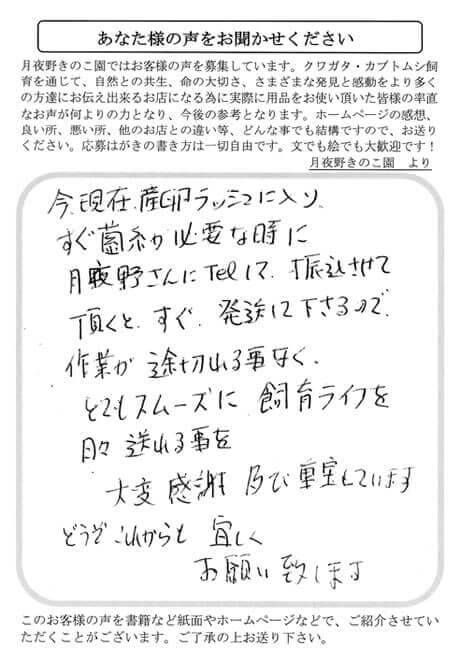 あなた様の声をお聞かせください
月夜野きのこ園ではお客様の声を募集しています。クワガタ・カブトムシ飼
育を通じて、自然との共生、命の大切さ、さまざまな発見と感動をより多く
の方達にお伝え出来るお店になる為に実際に用品をお使い頂いた皆様の率直
なお声が何よりの力となり、今後の参考となります。ホームページの感想、
良い所、悪い所、他のお店との違い等、どんな事でも結構ですので、お送り
ください。応募はがきの書き方は一切自由です。文でも絵でも大歓迎です!
月夜野きのこ園 より
今、現在、産卵ラッシュに入り、
すぐ菌糸が必要な時に
月夜野さんにTelして、振込させて
頂くと、すぐ、発送して下さるので、
作業が途切れる事なく、
とてもスムーズに飼育ライフを
日々送れる事を
大変感謝及び重宝しています
どうぞこれからも宜しく
お願い致します
このお客様の声を書籍など紙面やホームページなどで、ご紹介させてい
ただくことがございます。ご了承の上お送り下さい。